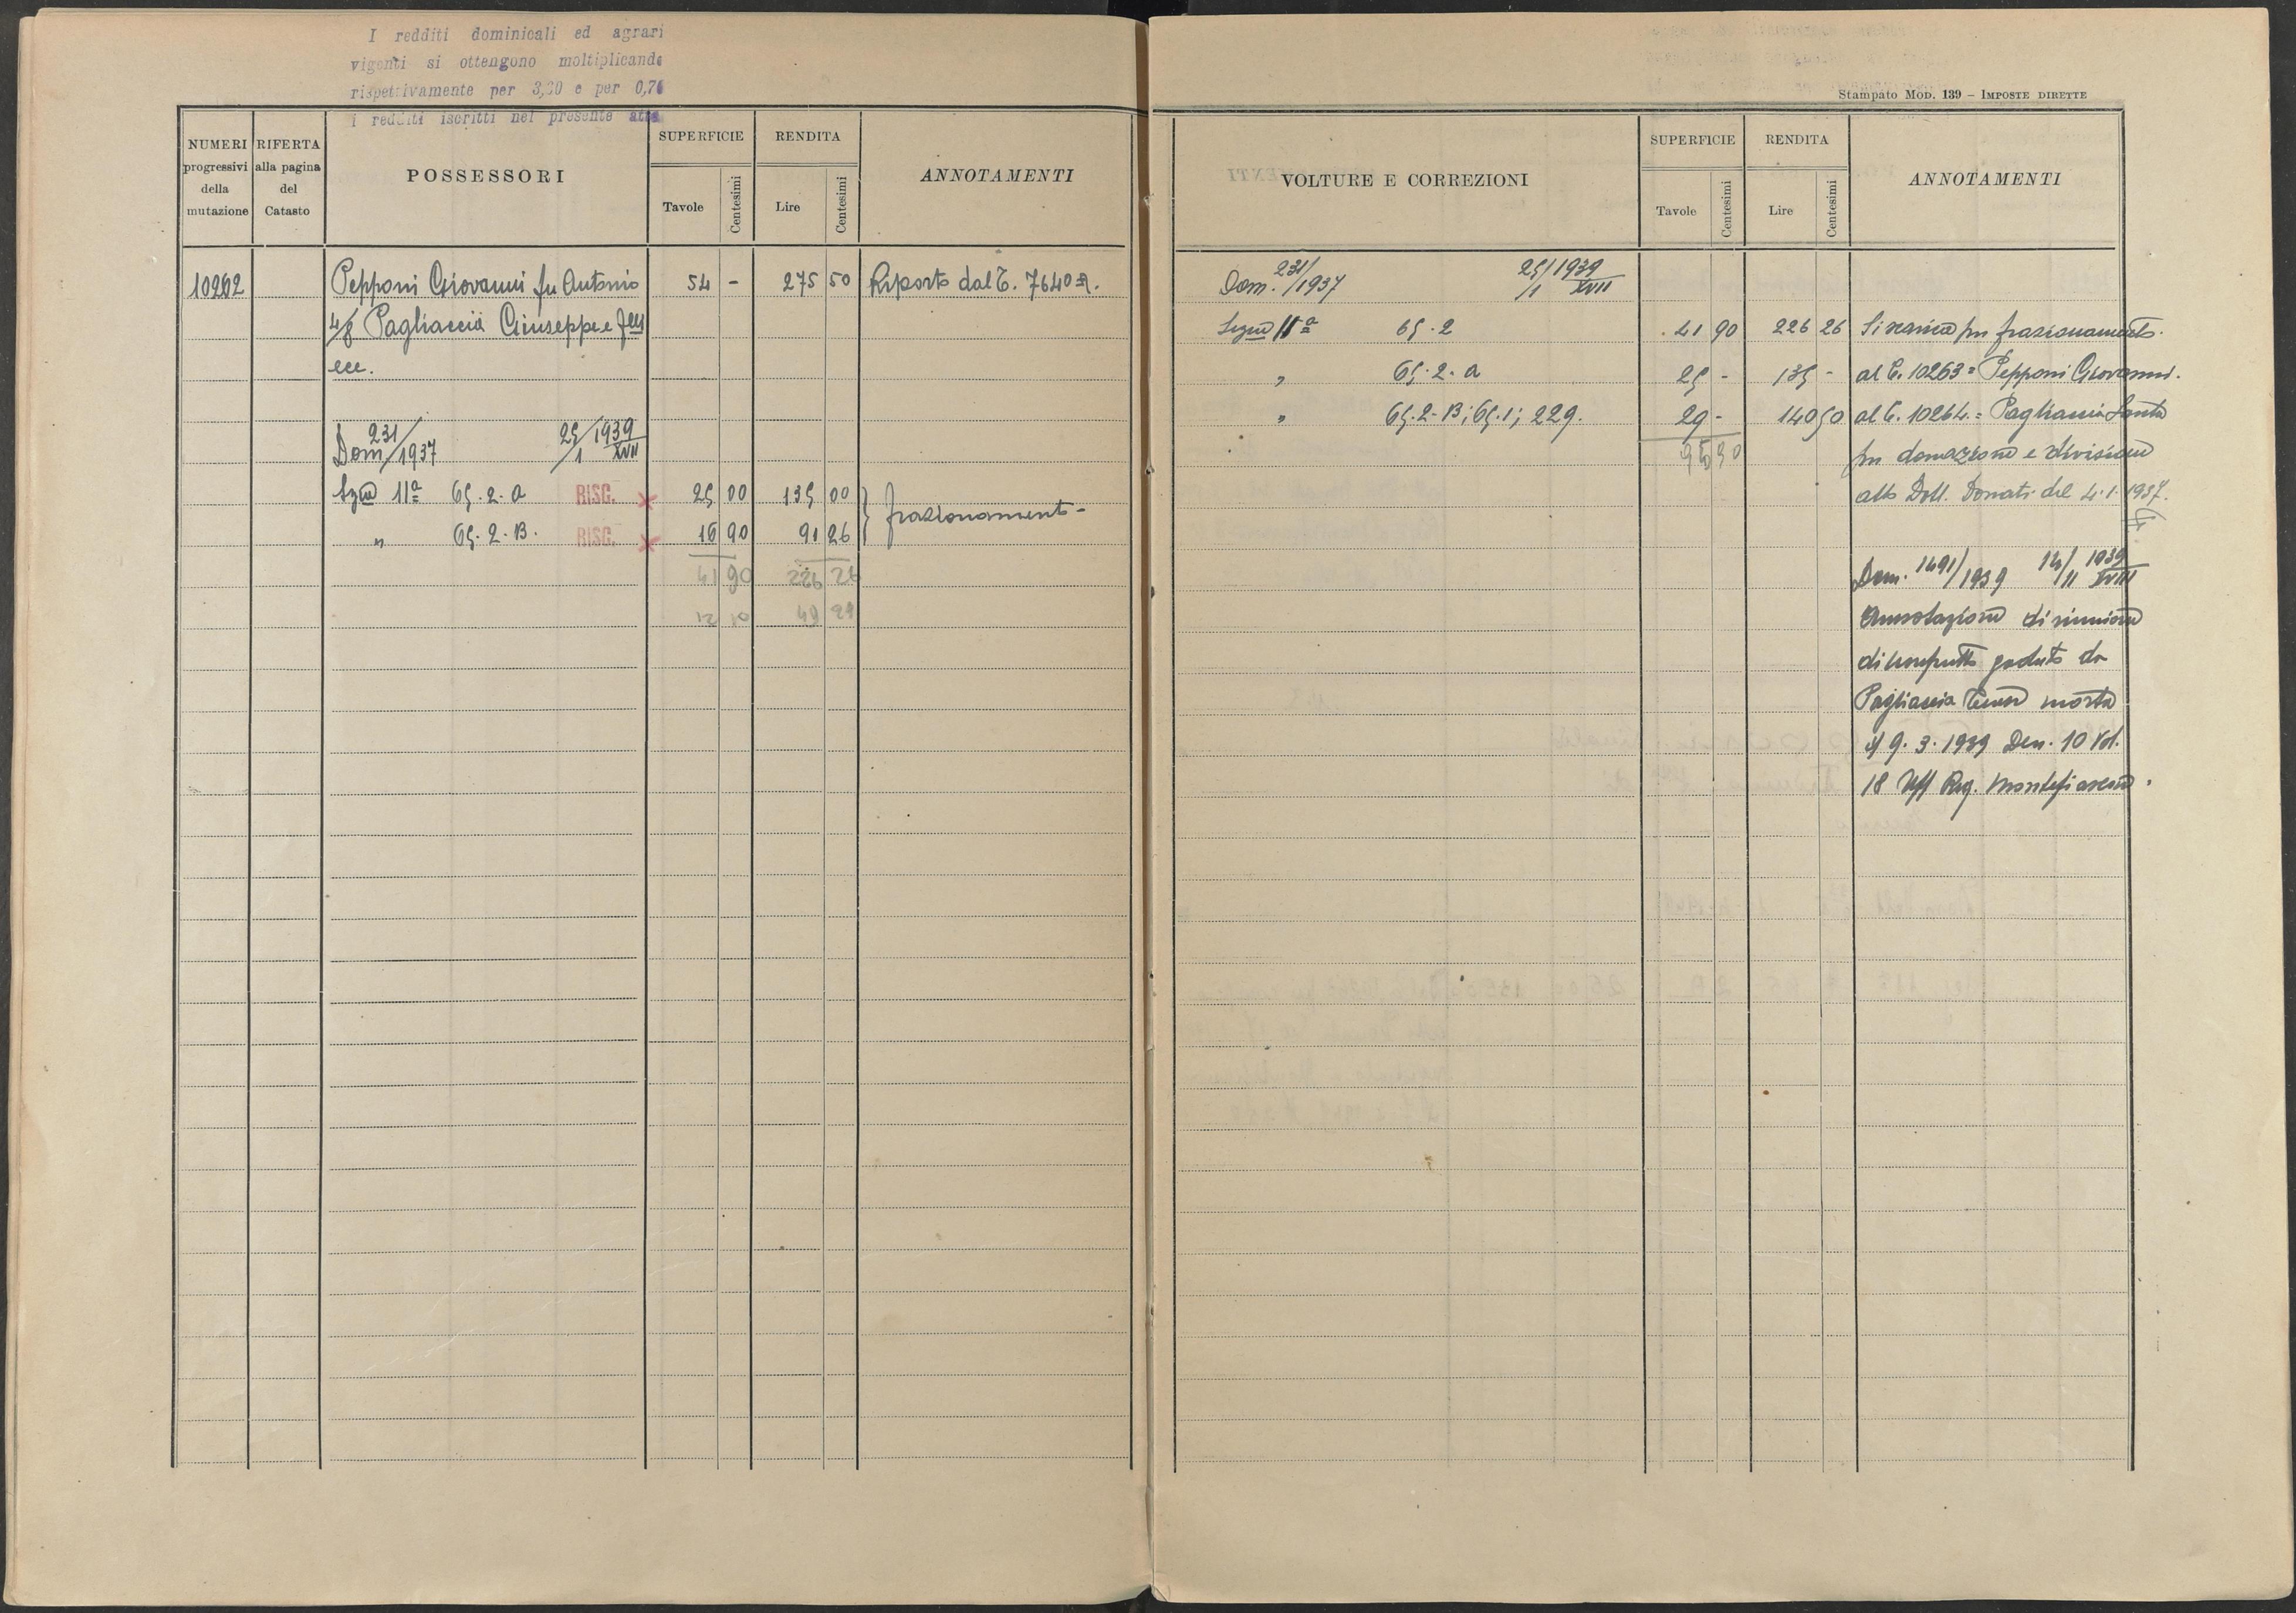 I redditi dominicali ed agrari
vigenti si ottengono moltiplicando
rispettivamente per 3,20 e per 0,76
i redditi iscritti nel presente atto
NUMERI progressivi della mutazione
RIFERTA alla pagina del Catasto
POSSESSORI
SUPERFICIE
Tavole Centesimi
RENDITA
Lire Centesimi
ANNOTAMENTI
10262 Pepponi Giovanni fu Antonio 54 - 275 50 Riporto dal C. 7640
4/8 Pagliaccia Giuseppe e
ecc.
Dom. 231/1937 25/1 1939 XVII
Sezne 11ª 65.2.a RISC. × 25 00 135 00 frazionamento
" 65.2.B. RISC. × 16 90 91 26
41 90 226 26
12 10 49 24
Stampato Mod. 139 – Imposte dirette
VOLTURE E CORREZIONI
SUPERFICIE
Tavole Centesimi
RENDITA
Lire Centesimi
ANNOTAMENTI
Dom. 231/1937 25/1 1939 XVII
Sezne 11ª 65.2 41 90 226 26 Si scarica per frazionamento.
" 65.2.a 25 - 135 - al C. 10263 = Pepponi Giovanni.
" 65.2-B; 65.1; 229. 29 - 140 50 al C. 10264 = Pagliaccia Santa
95 90 per donazione e divisione
atto Dott. Donati del 4.1.1937.
Dom. 1491/1939 14/11 1939 XVIII
Annotazione di riunione
di usufrutto goduto da
Pagliaccia morta
il 9.3.1939 Den. 10 Vol.
18 Uff Reg. Montefiascone.